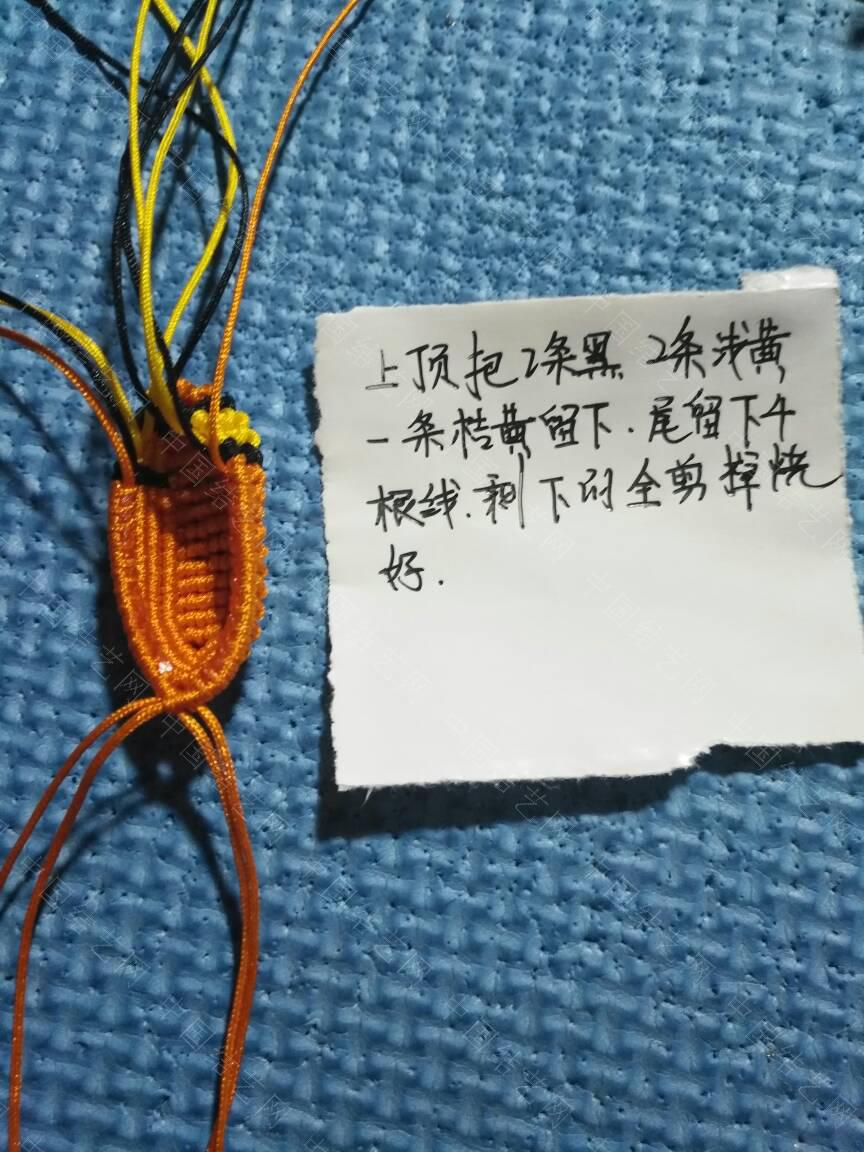 上顶把2条黑 2条浅黄
一条桔黄留下.尾留下4
根线.剩下的全剪掉烧
好.
中国结艺网